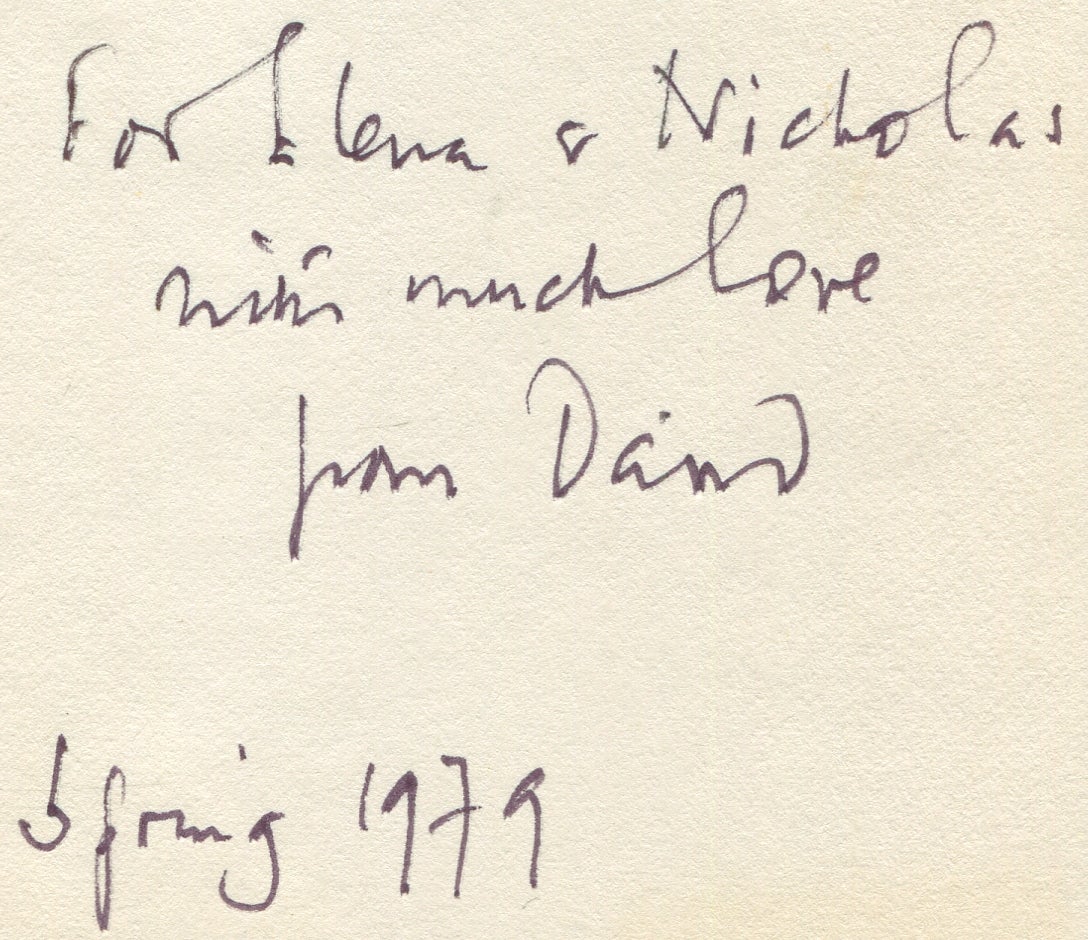 For Ilena & Nicholas
with much love
from David
Spring 1979